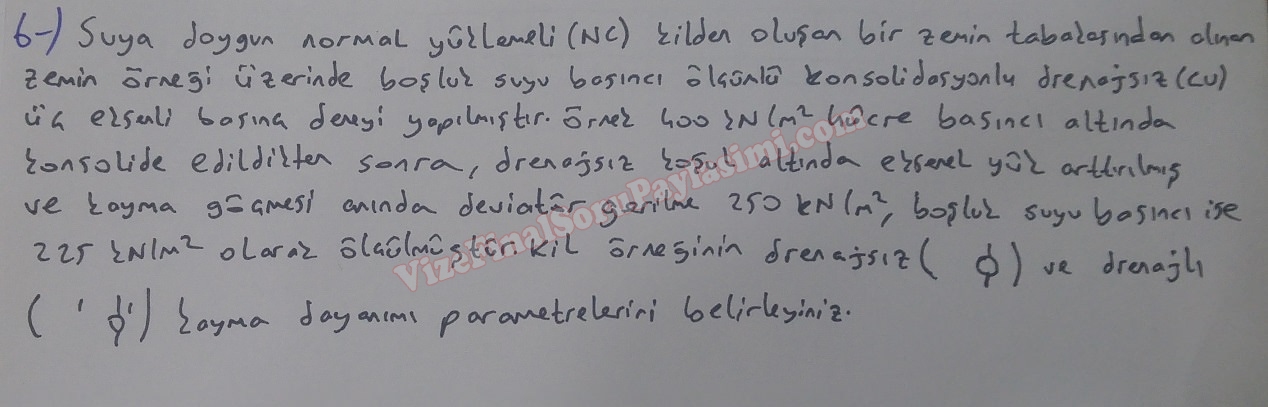 6-) Suya doygun normal yüklemeli (NC) kilden oluşan bir zemin tabakasından alınan
zemin örneği üzerinde boşluk suyu basıncı ölçümlü konsolidasyonlu drenajsız (CU)
üç eksenli basınç deneyi yapılmıştır. Örnek 400 kN/m² hücre basıncı altında
konsolide edildikten sonra, drenajsız koşul altında eksenel yük arttırılmış
ve kayma göçmesi anında deviatör gerilme 250 kN/m², boşluk suyu basıncı ise
225 kN/m² olarak ölçülmüştür. Kil örneğinin drenajsız ( ϕ ) ve drenajlı
( ' ϕ' ) kayma dayanımı parametrelerini belirleyiniz.
VizeFinalSoruPaylasimi.com